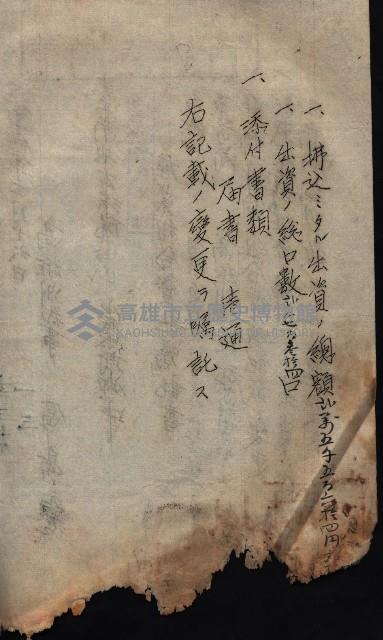 一、拂込ミタル出資ノ總額 弐萬五千五百六拾四円
一、出資ノ総口数 弐百参拾四口
一、添付書類
届書 壱通
右記載ノ變更ヲ囑託ス
高雄市立歷史博物館
KAOHSIUNG MUSEUM OF HISTORY